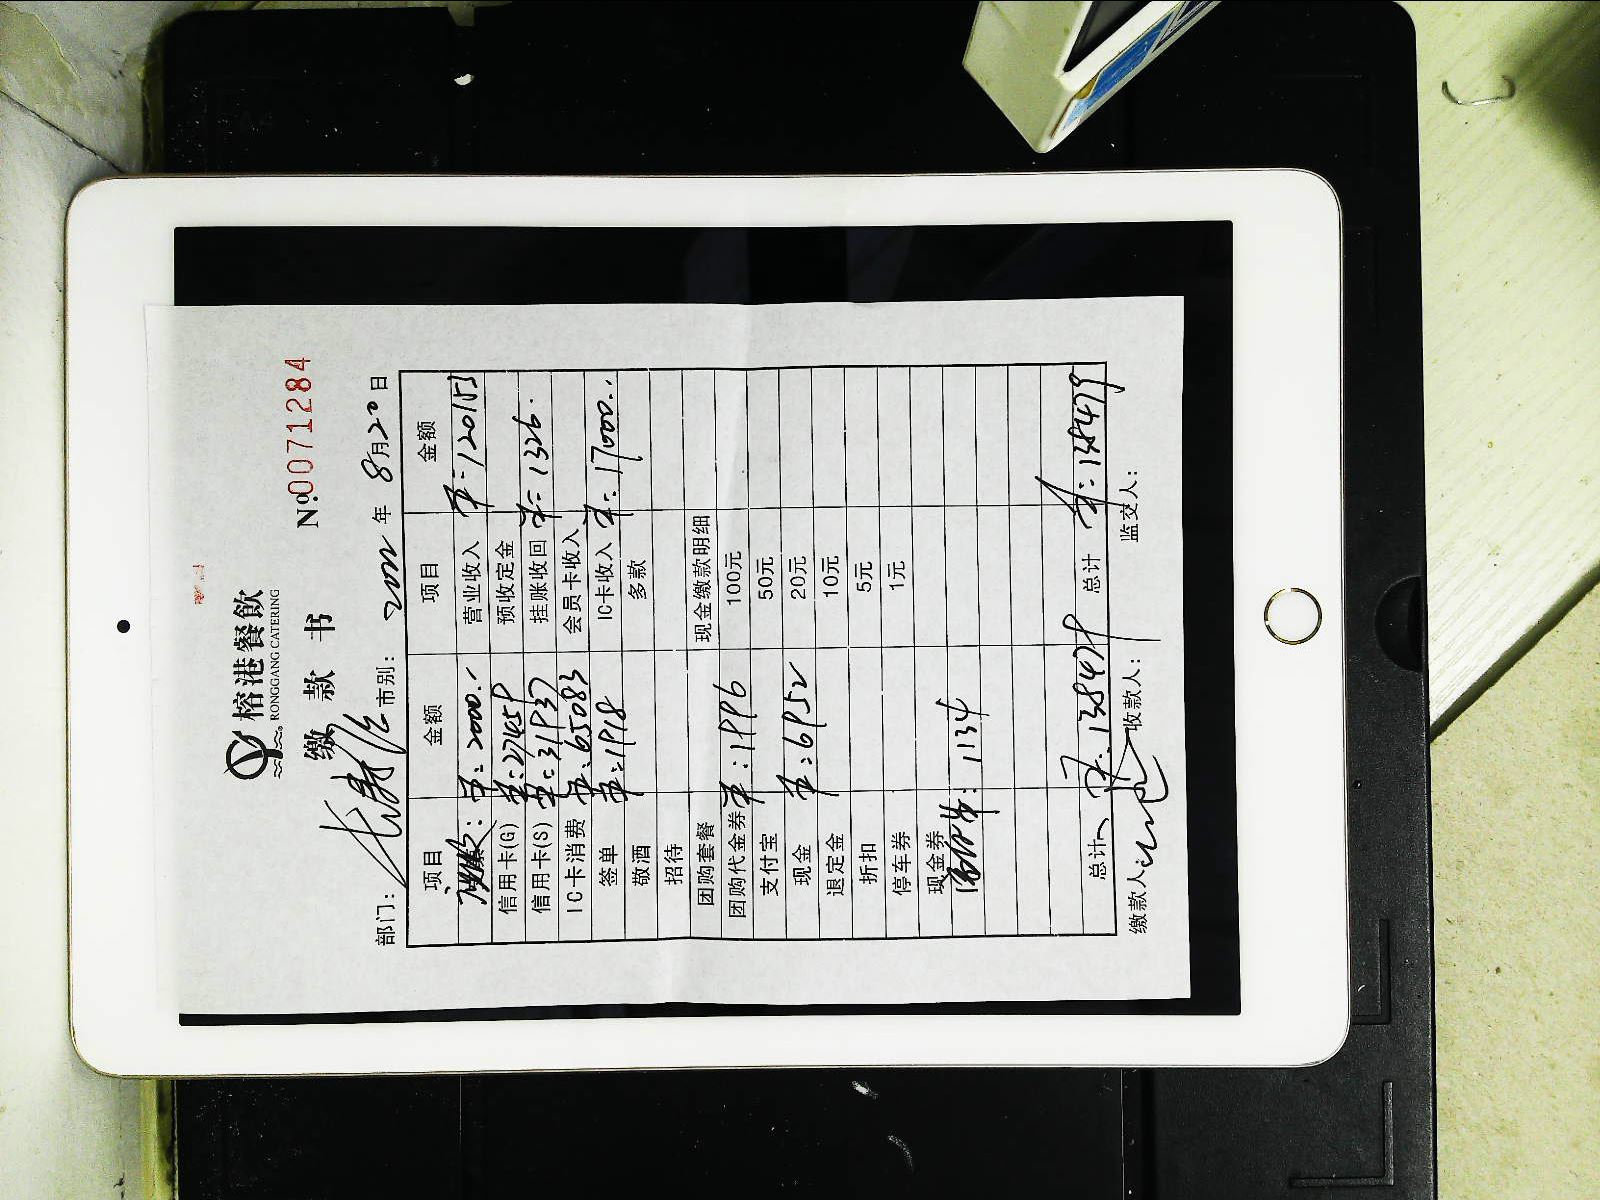 榕港餐飲
RONGGANG CATERING
缴 款 书 №0071284
部门： 市别： 2022 年 8月20日
项目 金额 项目 金额
¥:2000.- 营业收入 ¥:120153
信用卡(G) ¥:27459 预收定金
信用卡(S) ¥:31937 挂账收回 ¥:1326.
IC卡消费 ¥:65083 会员卡收入
签单 ¥:1918 IC卡收入 ¥:17000..
敬酒 多款
招待
团购套餐 现金缴款明细
团购代金券 ¥:1996 100元
支付宝 50元
现金 ¥:6952 20元
退定金 10元
折扣 5元
停车券 1元
现金券
1134
总计 ¥:138479 总计 ¥:138479
缴款人： 收款人： 监交人：